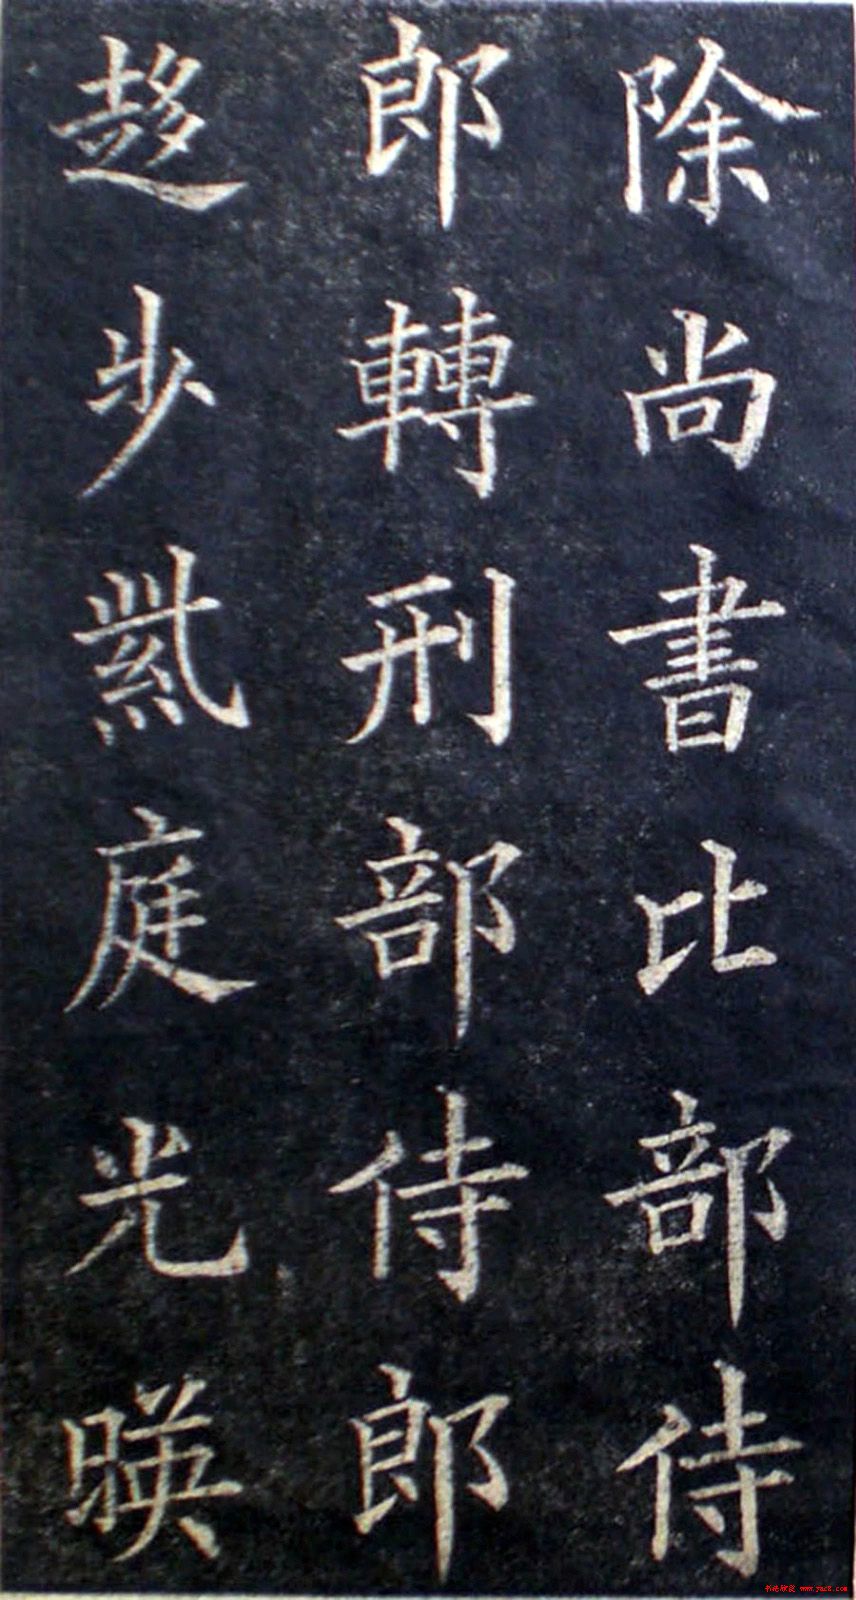 除尚書比部侍
郎轉刑部侍郎
趍步紫庭光暎
书法欣赏 www.yac8.com